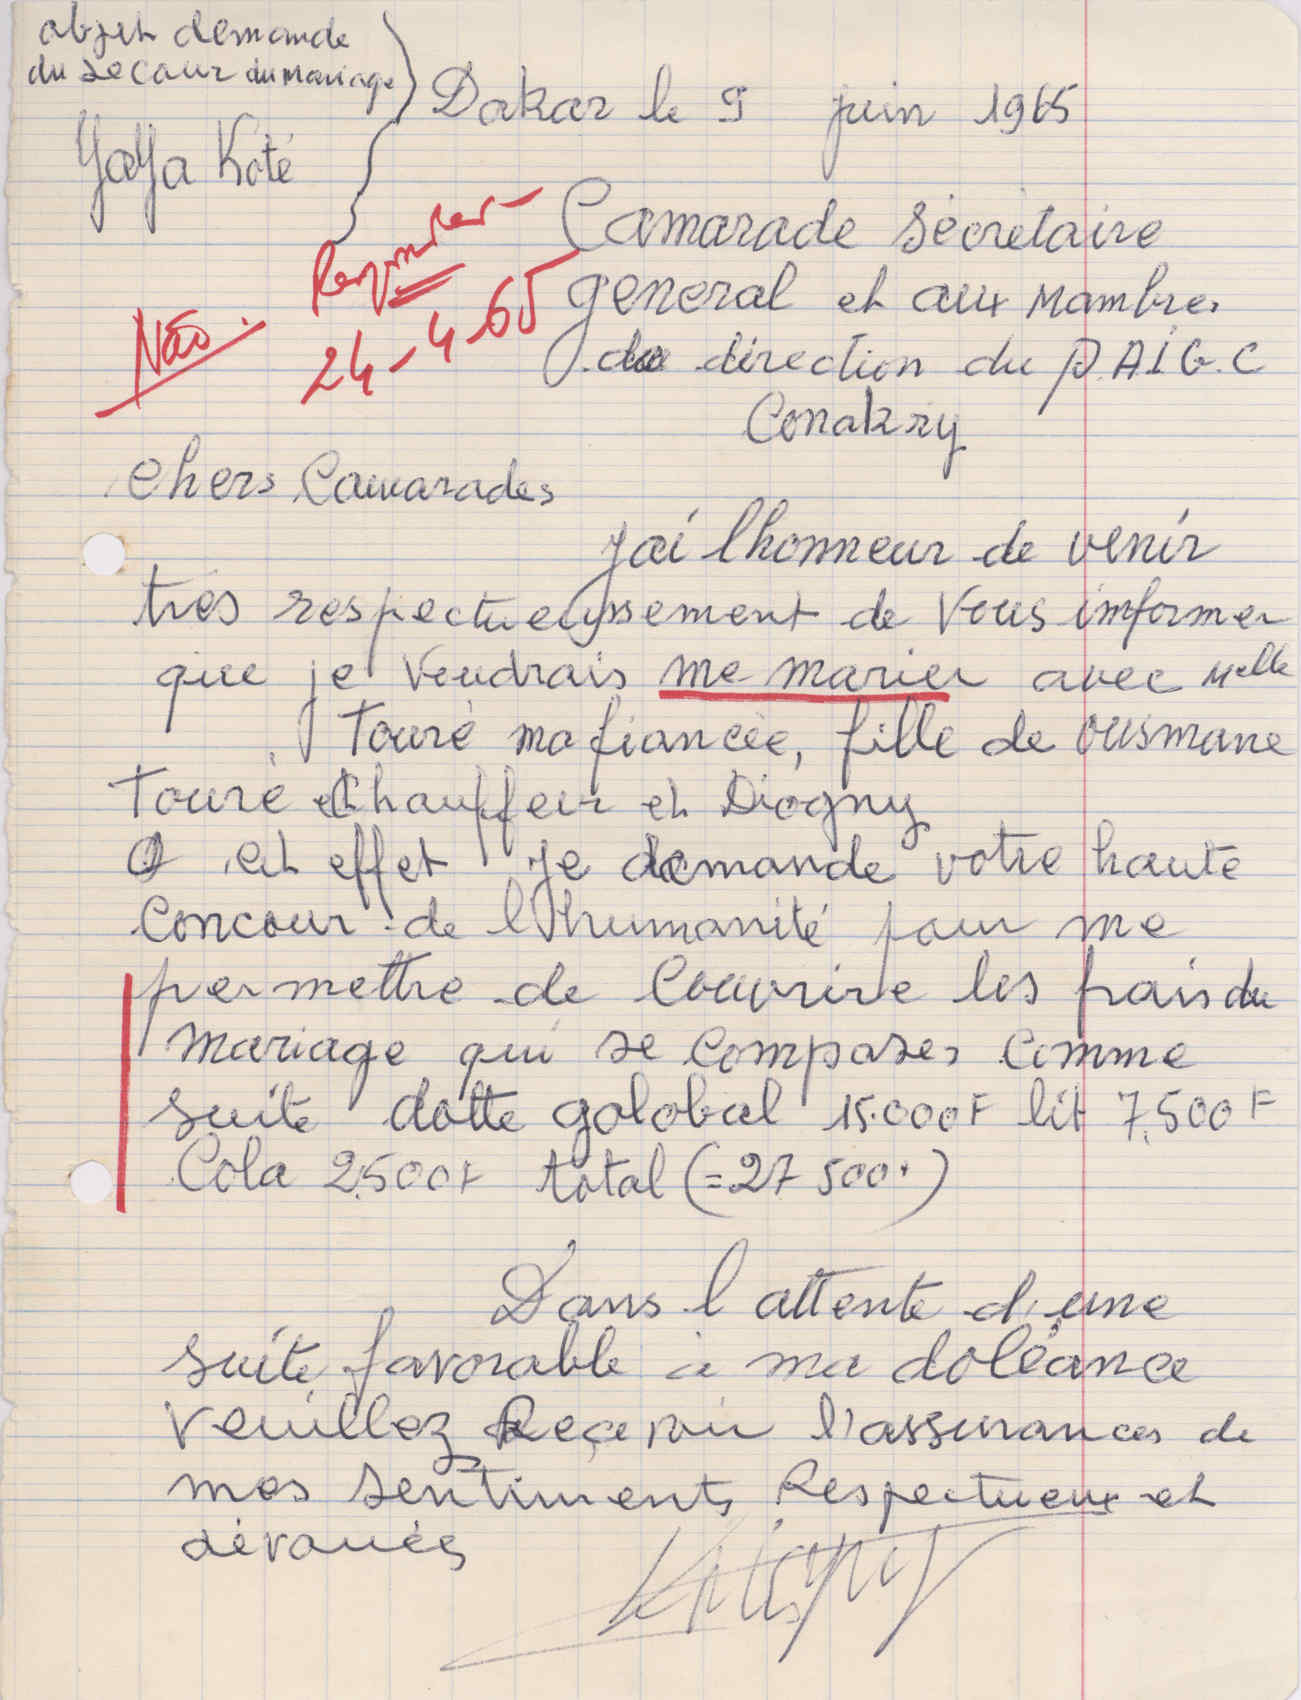 objet demande
du secour du mariage
Yaya Koté
Dakar le 9 juin 1965
Camarade Sécrétaire
general et aux Mambres
de direction du P.A.I.G.C
Conakry
Não.
Responder
24-4-65
Chers Camarades
J'ai lhonneur de venir
tres respectueussement de vous imformer
que je voudrais me marier avec Melle
Touré ma fiancée, fille de Ousmane
Touré Chauffeur et Diogny
et effet je demande votre haute
Concour de l'humanité pour me
permettre de Couvrire les frais du
mariage qui se composes comme
suite dotte golobal 15.000F lit 7.500F
Cola 2.500F total (=27 500F)
Dans l'attente d'une
suite favorable à ma doléance
Veuillez Reçevoir l'assurances de
mes sentiments Respectueux et
dévoués